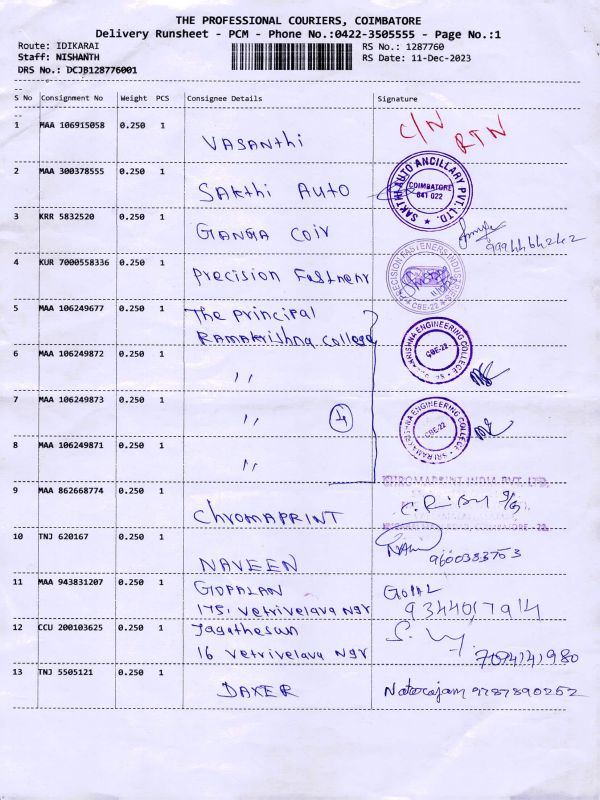 THE PROFESSIONAL COURIERS, COIMBATORE
Delivery Runsheet - PCM - Phone No.:0422-3505555 - Page No.:1
Route: IDIKARAI RS No.: 1287760
Staff: NISHANTH RS Date: 11-Dec-2023
DRS No.: DCJB128776001
S No Consignment No Weight PCS Consignee Details Signature
1 MAA 106915058 0.250 1 VASANThi C/N RTN
2 MAA 300378555 0.250 1 SAKthi AUTO SAKTHI AUTO ANCILLARY PVT. LTD. COIMBATORE 641 022
3 KRR 5832520 0.250 1 GANGA COir
4 KUR 7000558336 0.250 1 Precision Fastnenr PRECISION FASTENERS INDUSTRIES CBE-22
5 MAA 106249677 0.250 1 The principal
Ramakrishna college KRISHNA ENGINEERING COLLEGE CBE-22
6 MAA 106249872 0.250 1 ,,
7 MAA 106249873 0.250 1 ,, 4 SRI RAMAKRISHNA ENGINEERING COLLEGE CBE-22
8 MAA 106249871 0.250 1 ,,
9 MAA 862668774 0.250 1 ChromAPRINT CHROMAPRINT INDIA PVT. LTD.
10 TNJ 620167 0.250 1 NAVEEN 9600333753
11 MAA 943831207 0.250 1 GOPALAN GOPAL
175, Vetrivelava Ngr 9344017914
12 CCU 200103625 0.250 1 Jagathesan
16 Vetrivelava Ngr 7094141980
13 TNJ 5505121 0.250 1 DAXER Natarajam 9787890252